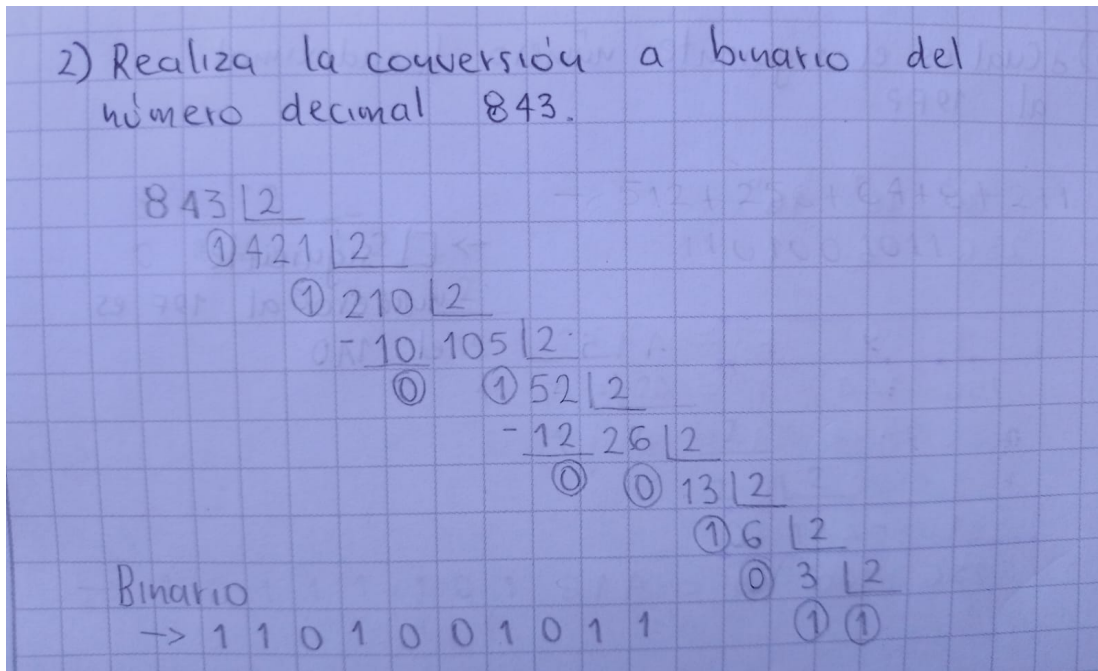 2) Realiza la conversión a binario del
número decimal 843.
843 2
1 421 2
1 210 2
- 10 105 2
0 1 52 2
- 12 26 2
0 0 13 2
1 6 2
0 3 2
1 1
Binario
-> 1 1 0 1 0 0 1 0 1 1